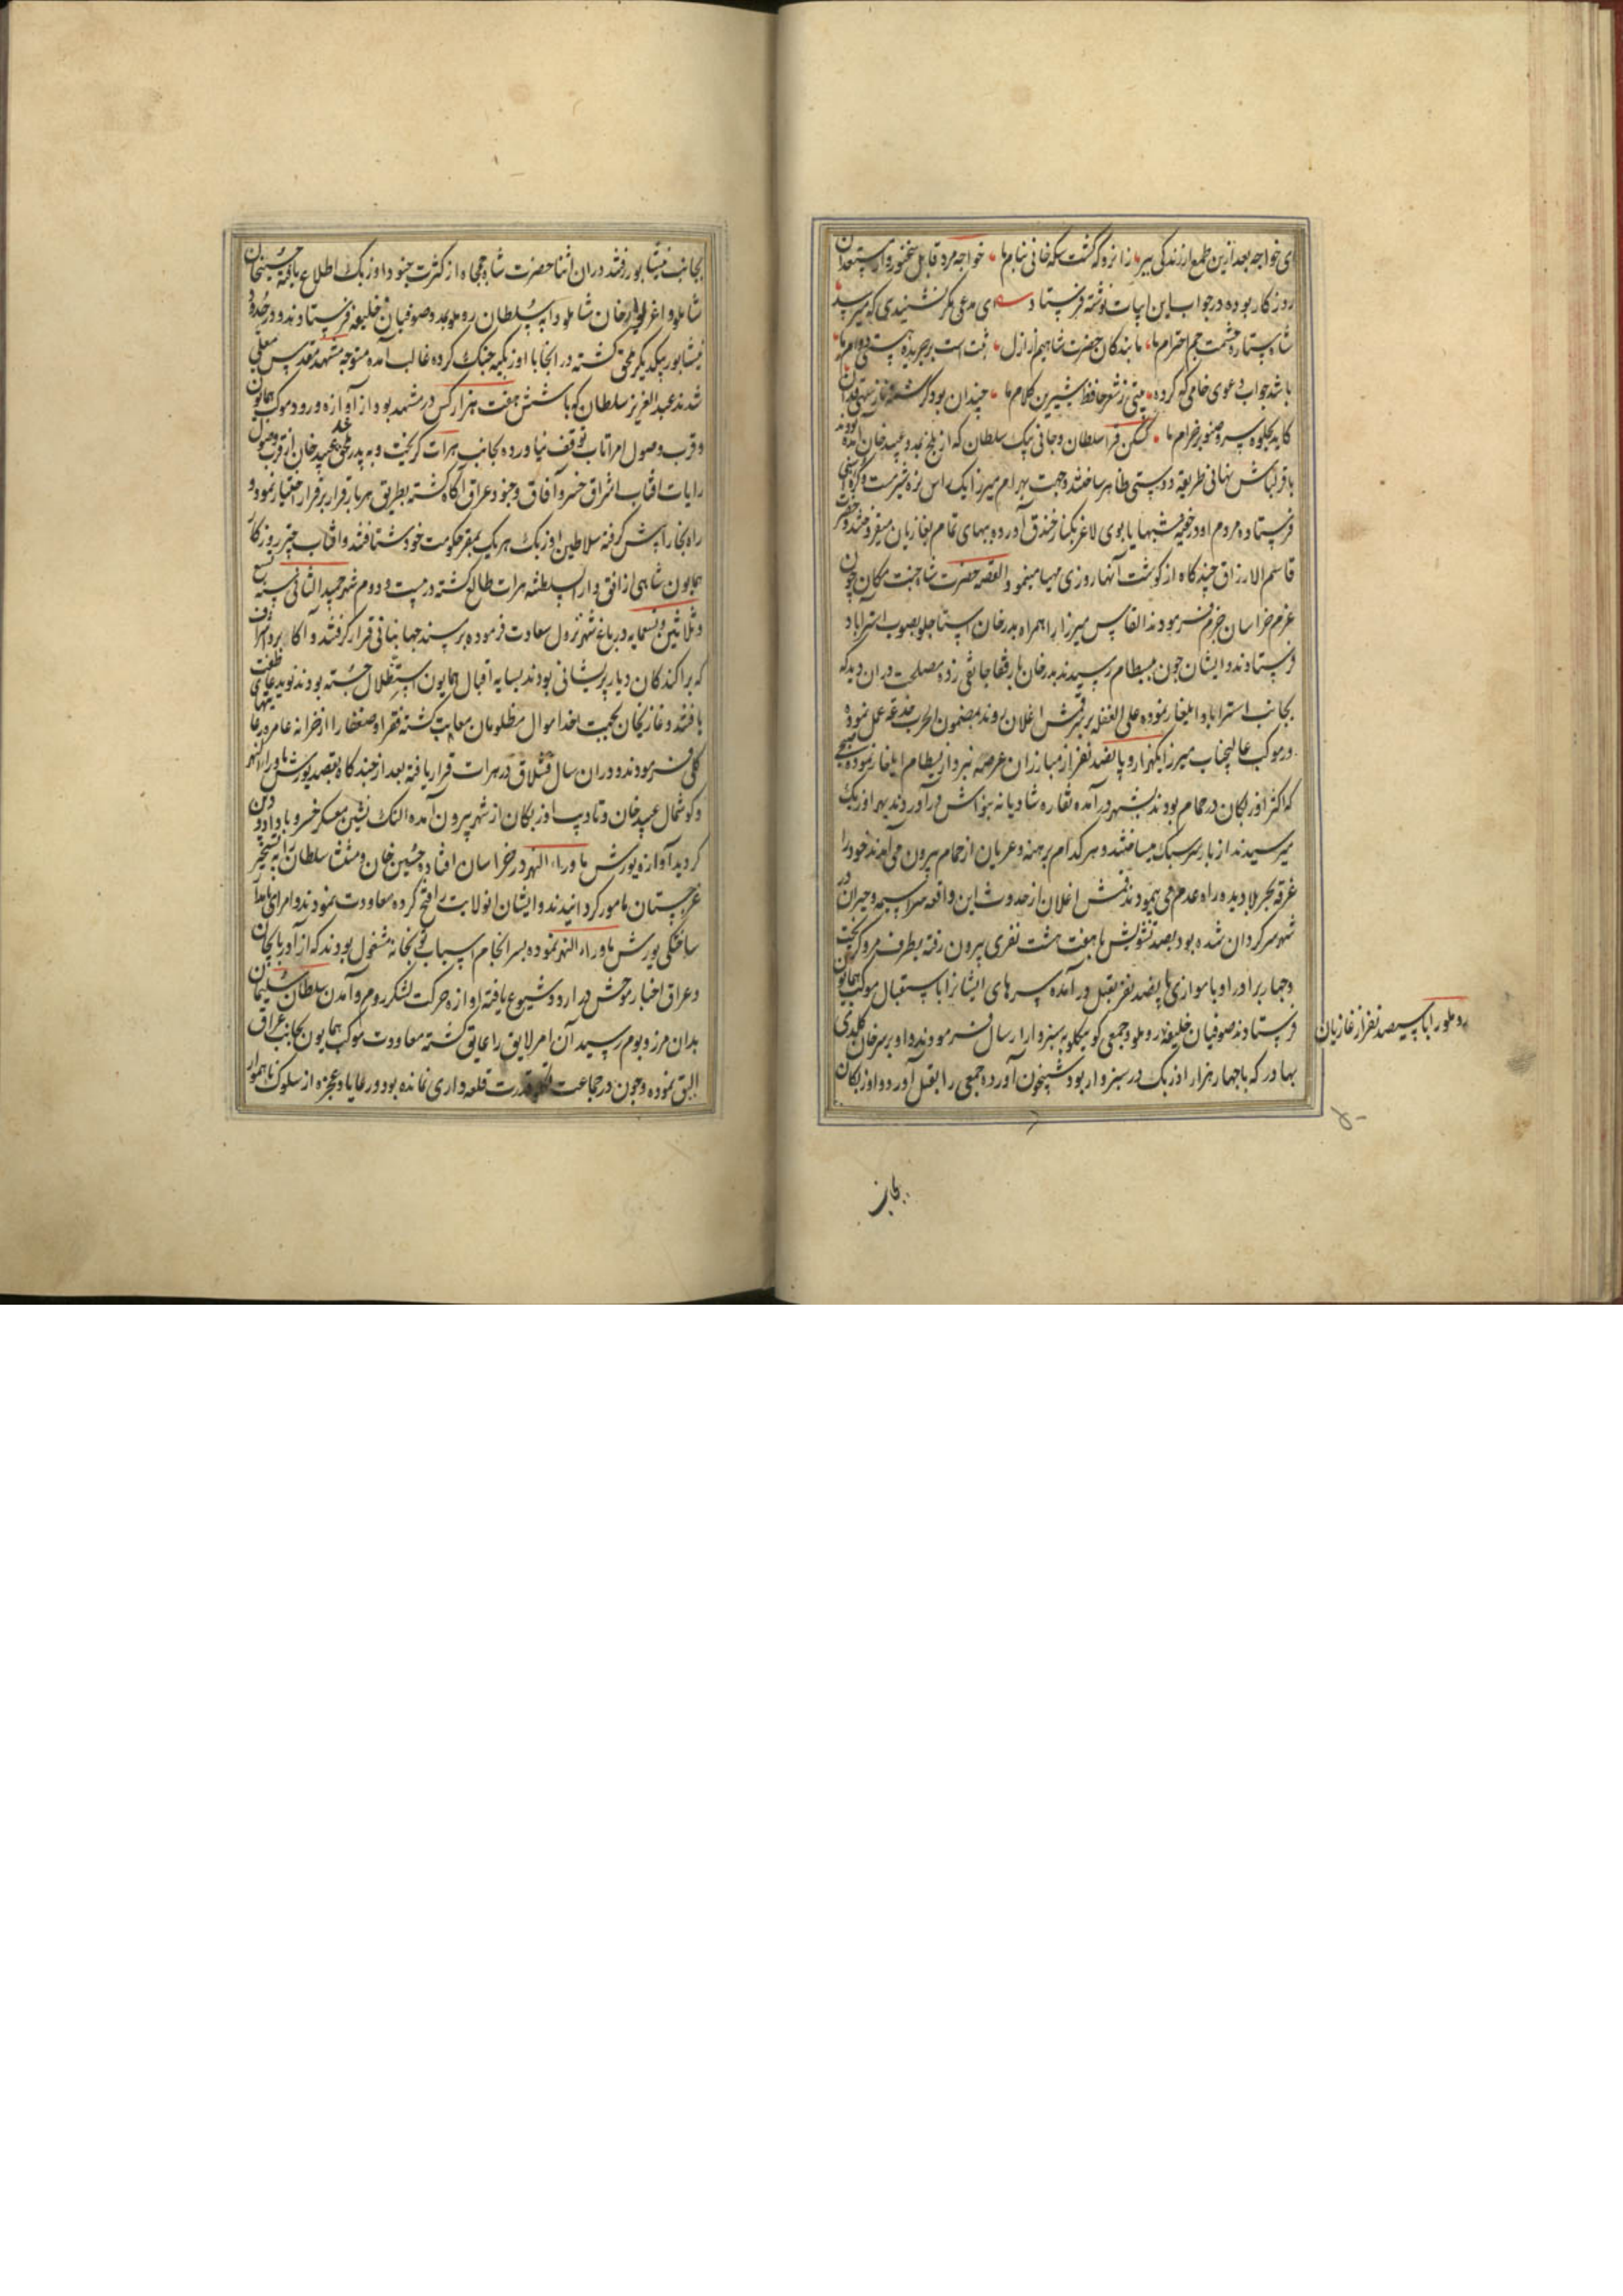 ای خواجه بعد ازین طمع از زندگی ببر زانرو که گشت سکه خانی بنام ما خواجه مرد قابل سخنور و از مستعدان
روزگار بوده در جواب این ابیات نوشته فرستاد ای مدعی مگر نشنیدی که میرسد
شاه ستاره حشمت جم احترام ما ما بندگان حضرت شاهیم از ازل ثبت است بر جریده هستی دوام ما
باشد جواب دعوی خامی که کرده بیتی ز شعر حافظ شیرین کلام ما چندان بود کرشمه و ناز سهی قدان
کاید بجلوه سرو صنوبر خرام ما کسکن قرا سلطان و جانی بیک سلطان که از بلخ بمدد عبید خان آمده بودند
با قزلباش نهانی طریقه دوستی ظاهر ساختند و جهت بهرام میرزا یک راس بزه شیرمست
فرستاده مردم او در خفیه شبها یابوی لاغر بکنار خندق آورده ببهای تمام بغازیان میفروختند و حضرت
قاسم الارزاق چندگاه از گوشت آنها روزی مهیا مینمود القصه حضرت شاه جنت مکان چون
عزم خراسان جزم فرمودند القاس میرزا را همراه بدرخان استاجلو بصوب استراباد
فرستادند و ایشان چون ببسطام رسیدند بدرخان با رفقا جانقی زده مصلحت در آن دید که
بجانب استراباد ایلغار نموده علی الغفله بر سر قمش اغلان روند بمضمون الحرب خدعه عمل نموده
در موکب عالیجناب میرزا یکهزار و پانصد نفر از مبارزان عرصه نبرد از بسطام ایلغار نموده صبحی
که اکثر اوزبکان در حمام بودند بشهر درآمده نقاره شادیانه بنوازش درآوردند بهر اوزبک
میرسیدند از بار سر سبک میساختند و هر کدام برهنه و عریان از حمام بیرون می آمدند خود را
غرقه بحر بلا دیده راه عدم می پیمودند قمش اغلان از حدوث این واقعه سراسیمه و حیران در
شهر سرگردان شده بود بصد تشویش با هفت هشت نفری بیرون رفته بطرف مرو گریخت
و چهار برادر او با موازی پانصد نفر بقتل درآمده سرهای ایشانرا باستقبال موکب همایون
فرستادند صوفیان خلیفه روملو و جمعی کوسکلو به سبزوار ارسال فرمودند و او بر سر خان کلدی
بهادر که با چهار هزار اوزبک در سبزوار بود شبیخون آورده جمعی را بقتل آورد و اوزبکان
روملو را با سیصد نفر از غازیان
بجانب
بجانب نیشابور رفتند در آن اثنا حضرت شاه جمجاه از کثرت جنود اوزبک اطلاع یافته حسینخان
شاملو و اغزیوار خان شاملو و اپه سلطان روملو بمدد صوفیان خلیفه فرستادند و در حدود
نیشابور بیکدیگر ملحق گشته در آنجا با اوزبکیه جنگ کرده غالب آمده متوجه مشهد مقدس معلی
شدند عبد العزیز سلطان که با شش هفت هزار کس در مشهد بود از آوازه ورود موکب همایون
و قرب وصول امرا تاب توقف نیاورده بجانب هرات گریخت و به پدر ملحق شد عبید خان از قرب وصول
رایات آفتاب اشراق خسرو آفاق و جنود عراق آگاه گشته بطریق هر بار فرار بر قرار اختیار نمود و
راه بخارا پیش گرفته سلاطین اوزبک هر یک بمقر حکومت خود شتافتند و آفتاب چتر روزگار
همایون شاهی از افق دار السلطنه هرات طالع گشته در بیست و دوم شهر جمید الثانی سنه تسع
و ثلاثین و تسعمایه در باغ شهر نزول سعادت فرموده بر مسند جهانبانی قرار گرفتند و اکابر و اشراف
که پراکندگان دیار پریشانی بودند بسایه اقبال همایون استظلال جسته بودند نوید عاطفت
یافتند و غازیخان بجهت اخذ اموال مظلومان معاتب گشته فقرا و ضعفا را از خزانه عامره رعایتهای
کلی فرمودند و در آن سال قشلاق در هرات قرار یافته بعد از چندگاه بقصد یورش ماوراء النهر
و گوشمال عبید خان و تادیب اوزبکان از شهر بیرون آمده النک نشین معسکر خسرو با داد و دین
گردید آوازه یورش ماوراء النهر در خراسان افتاده حسین خان و منتشا سلطان را به تسخیر
غرجستان مامور گردانیدند و ایشان آنولایت را فتح کرده معاودت نمودند و امرای نامدار
ساختگی یورش ماوراء النهر نموده بسرانجام اسباب توپخانه مشغول بودند که از آذربایجان
و عراق اخبار موحش در اردو شیوع یافته آوازه حرکت لشکر روم و آمدن سلطان سلیمان
بدان مرز و بوم رسید آن امر لایق را عایق گشته معاودت موکب همایون بجانب عراق
الیق نموده و چون در جماعت قدرت قلعه داری نمانده بود و رعایا و عجزه از سلوک ناهموار